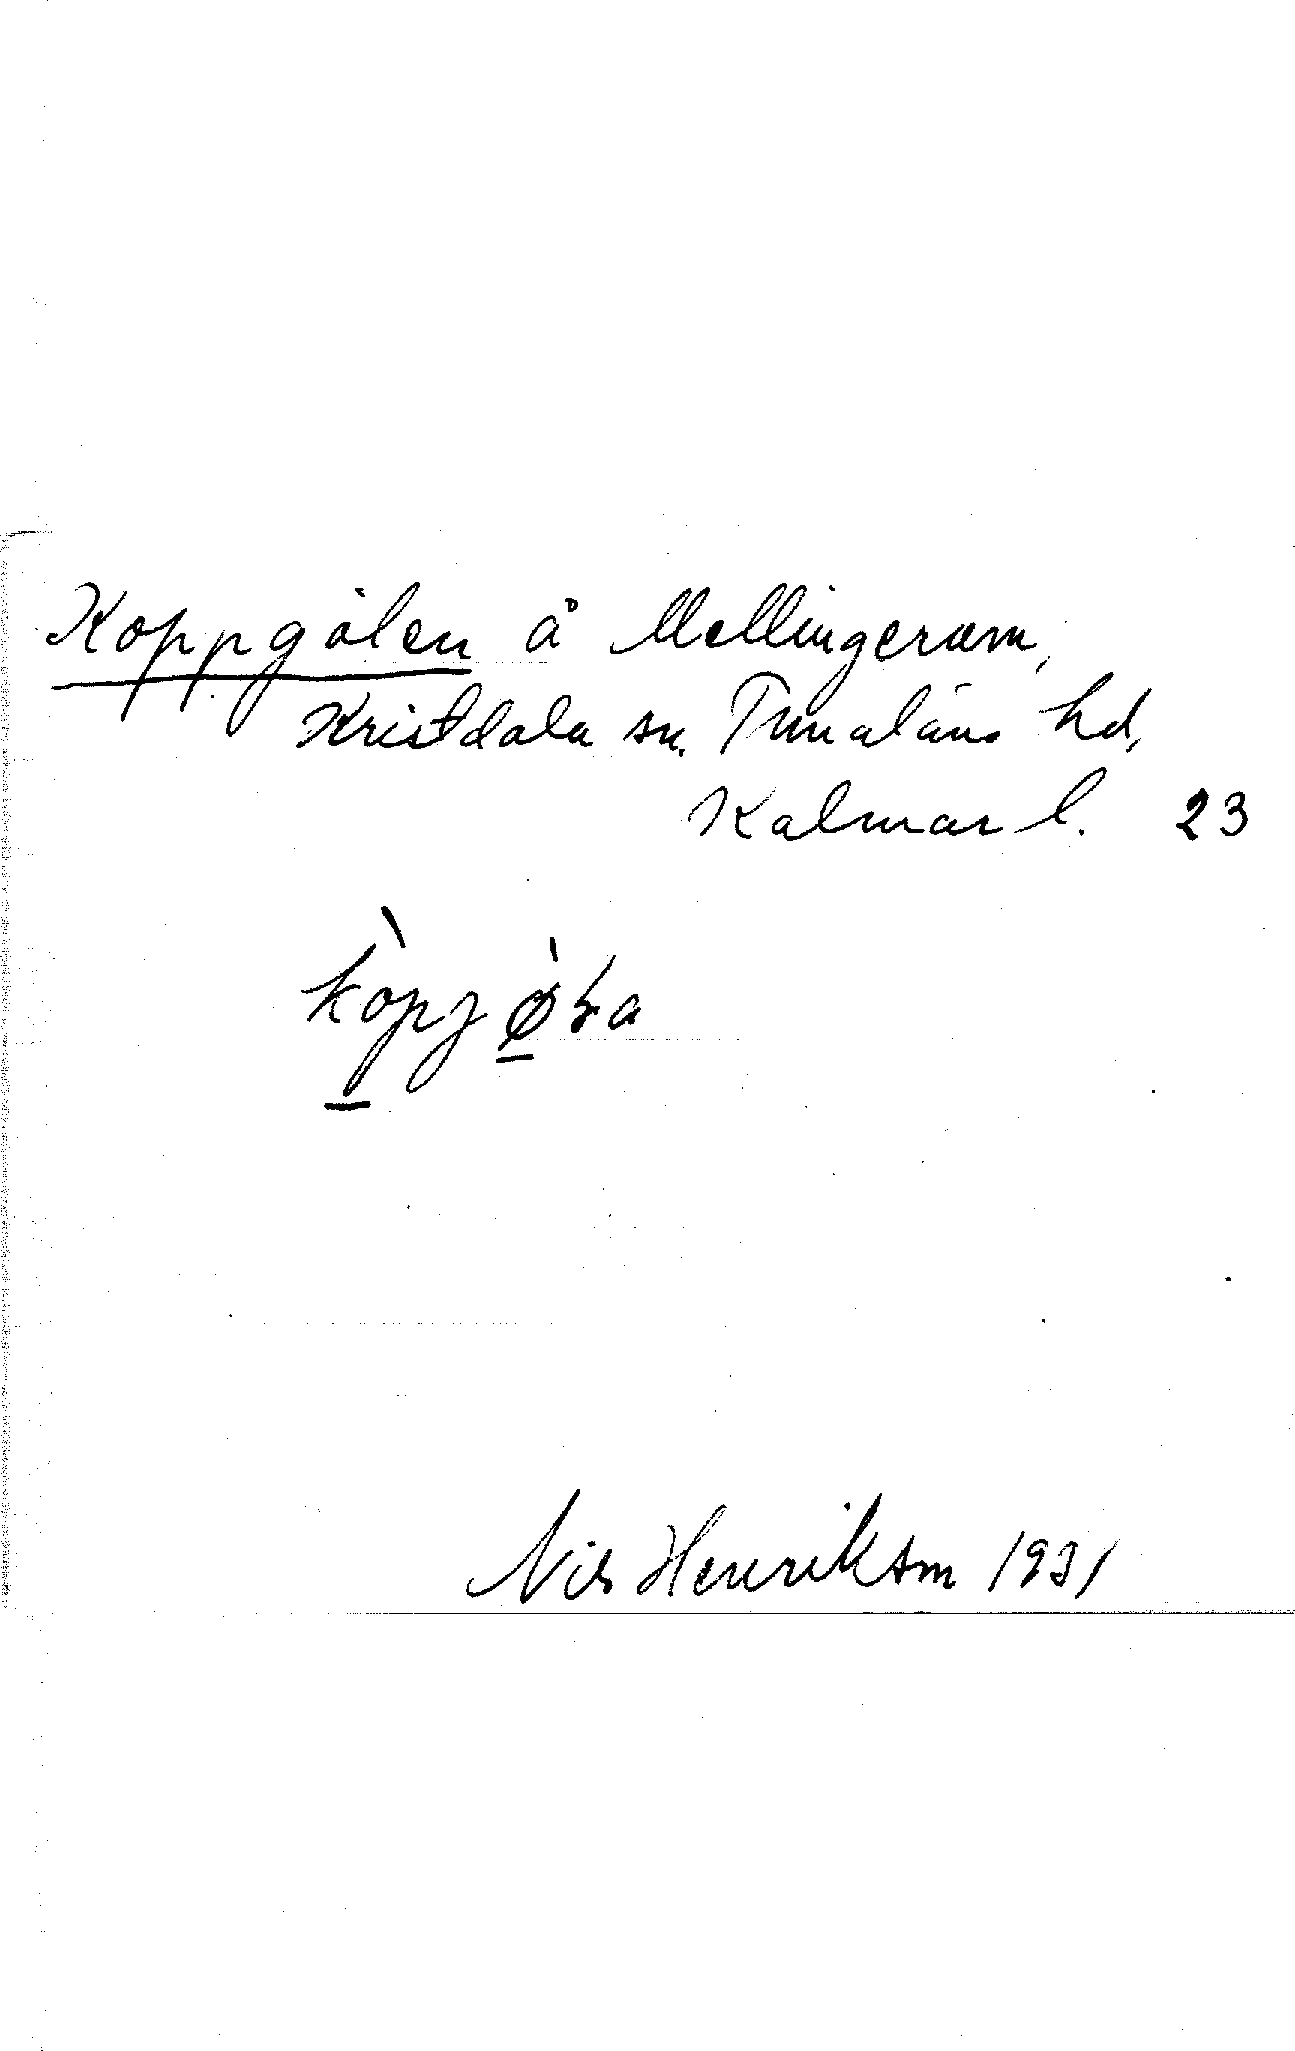 Koppgölen å Mellingerum,
Kristdala sn. Tunaläns hd,
Kalmar l. 23
Nils Henriksson 1931